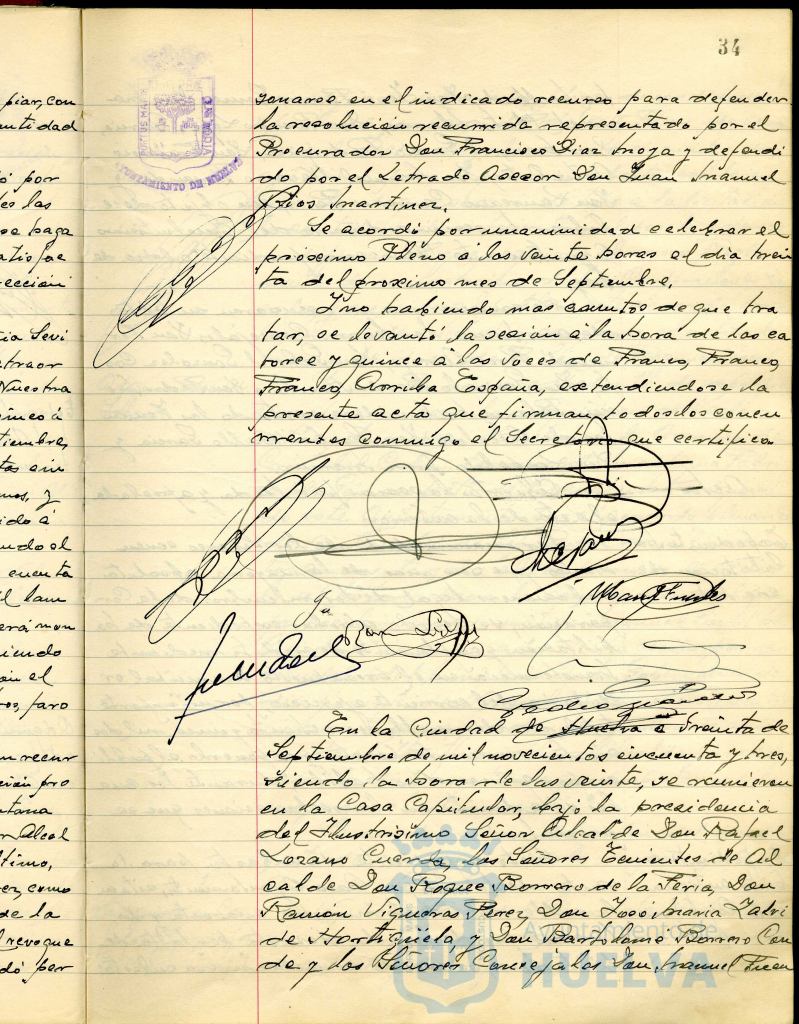 34
piar, con
antidad
ó por
es las
se haga
atisfae
ección
ria Sevi
etraor
Nuestra
tiembre,
tas sin
mos, y
ido á
ando el
cuenta
iendo
en el
ros, faro
n recur
ción pro
ntana
r Alcal
ltimo,
rez, como
de la
l revoque
dó por
PORTUS MARIS
AYUNTAMIENTO DE HUELVA
sonarse en el indicado recurso para defender
la resolución recurrida representado por el
Procurador Don Francisco Diaz Moya y defendi
do por el Letrado Asesor Don Juan Manuel
Rios Martinez.
Se acordó por unanimidad celebrar el
próximo Pleno á las veinte horas el día trein
ta del proximo mes de Septiembre.
Y no habiendo mas asuntos de que tra
tar, se levantó la sesión á la hora de las ca
torce y quince á las voces de Franco, Franco,
Franco, Arriba España, extendiendose la
presente acta que firman todos los concu
rrentes conmigo el Secretario que certifico
En la Ciudad de Huelva á treinta de
Septiembre de mil novecientos cincuenta y tres,
siendo la hora de las veinte, se reunieron
en la Casa Capitular, bajo la presidencia
del Ilustrisimo Señor Alcalde Don Rafael
Lozano Cuerda, los Señores Tenientes de Al
calde Don Roque Borrero de la Feria, Don
Ramón Vigueras Perez, Don José Maria Zalvi
de Hortigüela y Don Bartolomé Borrero Con
de y los Señores Concejales Don Manuel Fuen
Ayuntamiento de
HUELVA